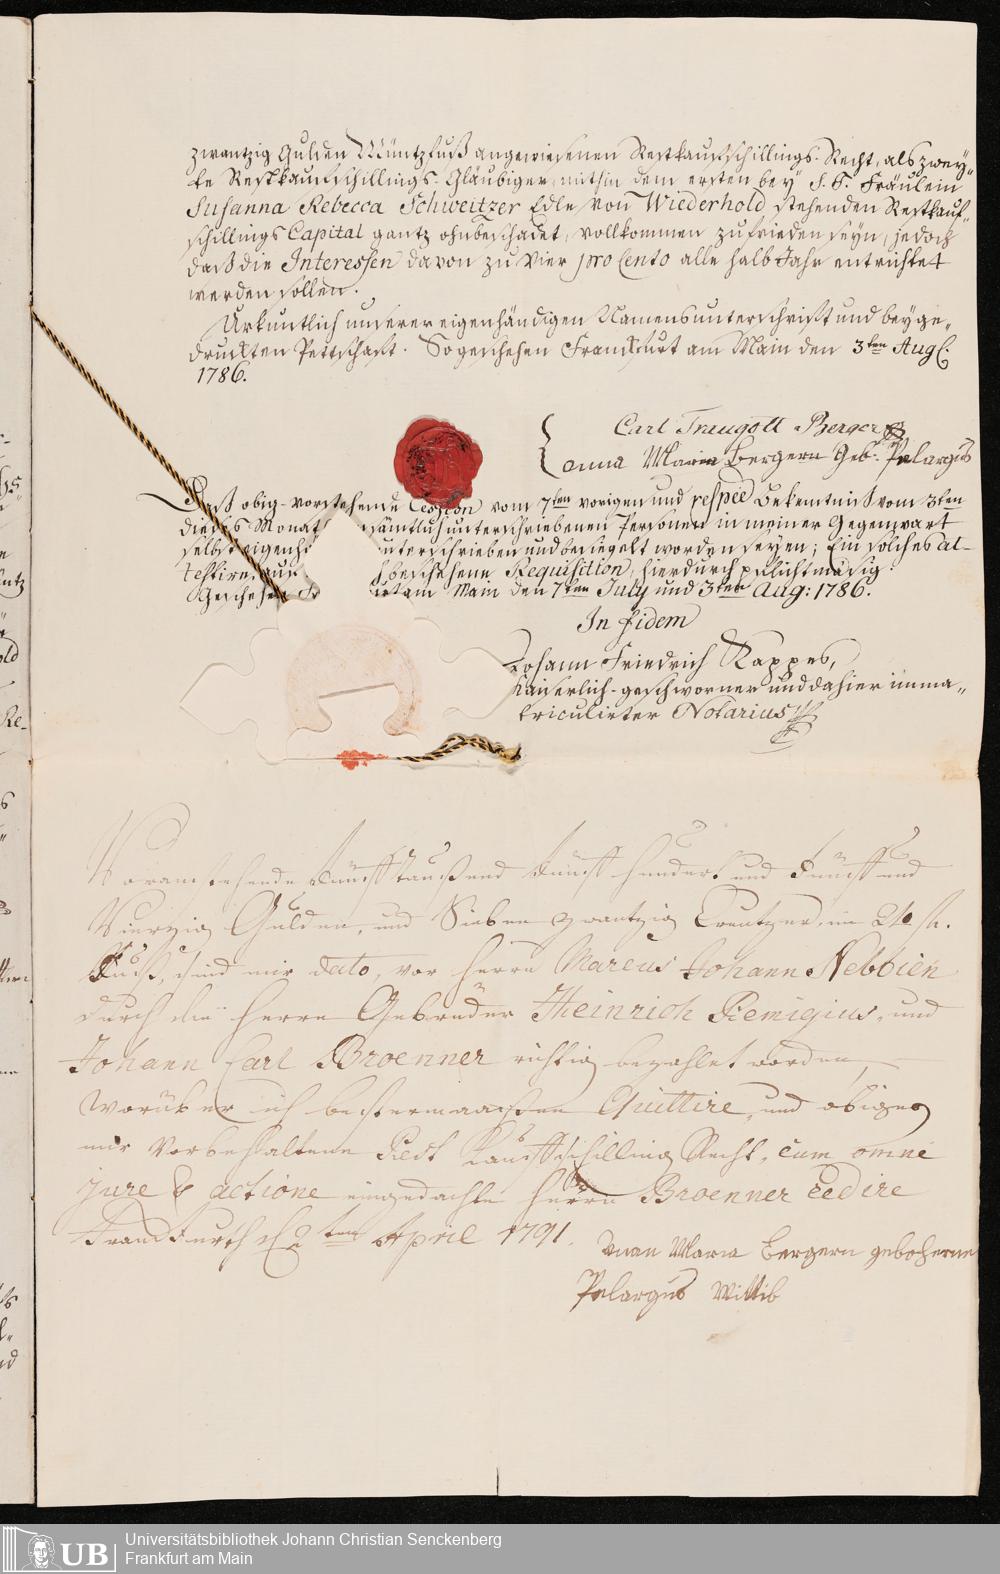 zwantzig Gulden Müntzfuß angewiesenen Restkaufschillings-Recht, als zwey„
te Restkaufschillings-Gläubiger, mithin dem ersten bey S. T. Fräulein
Susanna Rebecca Schweitzer Edle von Wiederhold stehenden Restkauf„
schillings Capital gantz ohnbeschadet, vollkommen zufrieden seyn, jedoch
daß die Interessen davon zu vier pro Cento alle halb Jahr entrichtet
werden sollen.
Urkuntlich unserer eigenhändigen Namensunterschrift und beyge„
druckten Pettschaft. So geschehen Franckfurt am Main den 3ten Aug.
1786.
Carl Traugott Berger
Anna Maria Bergern Geb. Pelargus
Daß obig-vorstehende Cession vom 7ten vorigen und respée Bekentniß vom 3ten
dieses Monats sämtlich unterschriebenen Personen in meiner Gegenwart
selbst eigenhä unterschrieben und besiegelt worden seyen; Ein solches at-
testire, auf beschehene Requisition, hierdurch pflichtmäsig.
Geschehen am Main den 7ten July und 3ten Aug: 1786.
In fidem
Johann Friedrich Kappes,
Kaiserlich-geschworner und dahier imma„
triculirter Notarius
Voranstehende Fünff taußend Fünff hundert und Fünff und
Vierzig Gulden, und Sieben zwantzig Creutzer, im 24 fl.
Fuß, sind mir dato, vor Herrn Marcus Johann Nebbien
durch die Herrn Gebrüder Heinrich Remigius, und
Johann Carl Broenner richtig bezahlet worden,
Worüber ich bestermaaßen Quittire, und obiges
mir Vorbehaltene Rest Kauffschilling Recht, cum omne
jure & actione eingedachte Herrn Broenner Cedire
Franckfurth d 2ten April 1791.
Anna Maria Bergern gebohrne
Pelargus Wittib
Universitätsbibliothek Johann Christian Senckenberg
Frankfurt am Main
UB